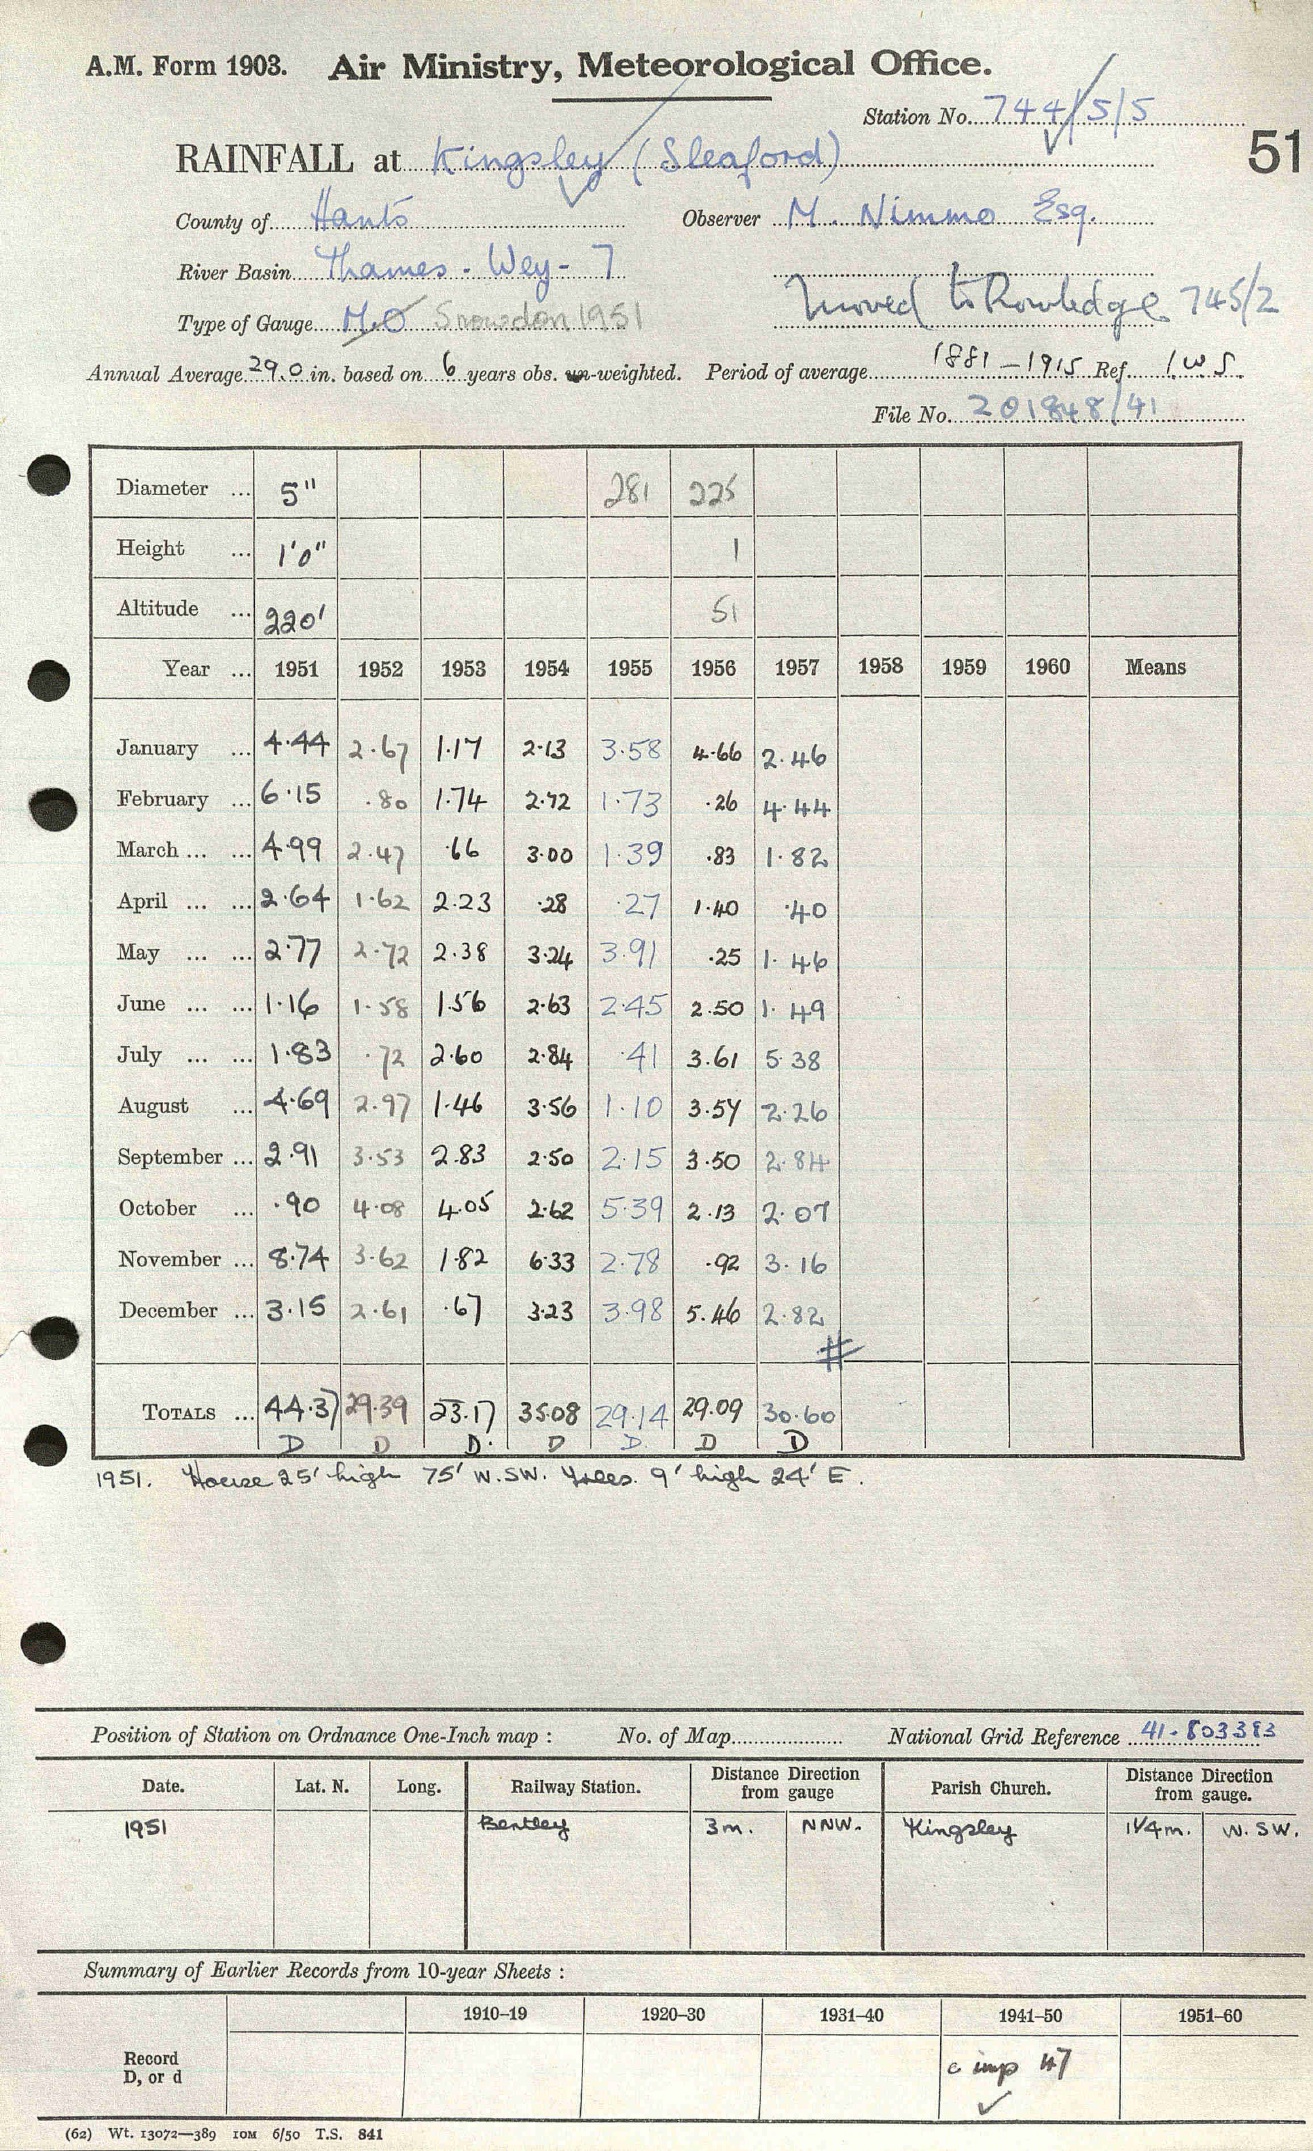 A.M. Form 1903. Air Ministry, Meteorological Office.
Station No. 744/5/5
51
RAINFALL at Kingsley (Sleaford)
County of Hants Observer M. Nimmo Esq.
River Basin Thames - Wey - 7
Moved to Rowledge 745/2
Type of Gauge M.O Snowdon 1951
Annual Average 29.0 in. based on 6 years obs. un-weighted. Period of average 1881-1915 Ref. IWS.
File No. 201848/41
Diameter ... 5" 281 225
Height ... 1'0" 1
Altitude ... 220' 51
Year ... 1951 1952 1953 1954 1955 1956 1957 1958 1959 1960 Means
January ... 4.44 2.67 1.17 2.13 3.58 4.66 2.46
February ... 6.15 .80 1.74 2.72 1.73 .26 4.44
March ... ... 4.99 2.47 .66 3.00 1.39 .83 1.82
April ... ... 2.64 1.62 2.23 .28 .27 1.40 .40
May ... ... 2.77 2.72 2.38 3.24 3.91 .25 1.46
June ... ... 1.16 1.58 1.56 2.63 2.45 2.50 1.49
July ... ... 1.83 .72 2.60 2.84 .41 3.61 5.38
August ... 4.69 2.97 1.46 3.56 1.10 3.57 2.26
September ... 2.91 3.53 2.83 2.50 2.15 3.50 2.84
October ... .90 4.08 4.05 2.62 5.39 2.13 2.07
November ... 8.74 3.62 1.82 6.33 2.78 .92 3.16
December ... 3.15 2.61 .67 3.23 3.98 5.46 2.82
#
TOTALS ... 44.37 29.39 23.17 35.08 29.14 29.09 30.60
D D D. D D D D
1951. House 25' high 75' W.SW. Trees. 9' high 24' E.
Position of Station on Ordnance One-Inch map : No. of Map National Grid Reference 41-803383
Date. Lat. N. Long. Railway Station. Distance from Direction gauge Parish Church. Distance from Direction gauge.
1951 Bentley 3m. NNW. Kingsley 1 1/4m. W. SW.
Summary of Earlier Records from 10-year Sheets :
1910-19 1920-30 1931-40 1941-50 1951-60
Record
D, or d
c imp 47
✓
(62) Wt. 13072—389 10M 6/50 T.S. 841